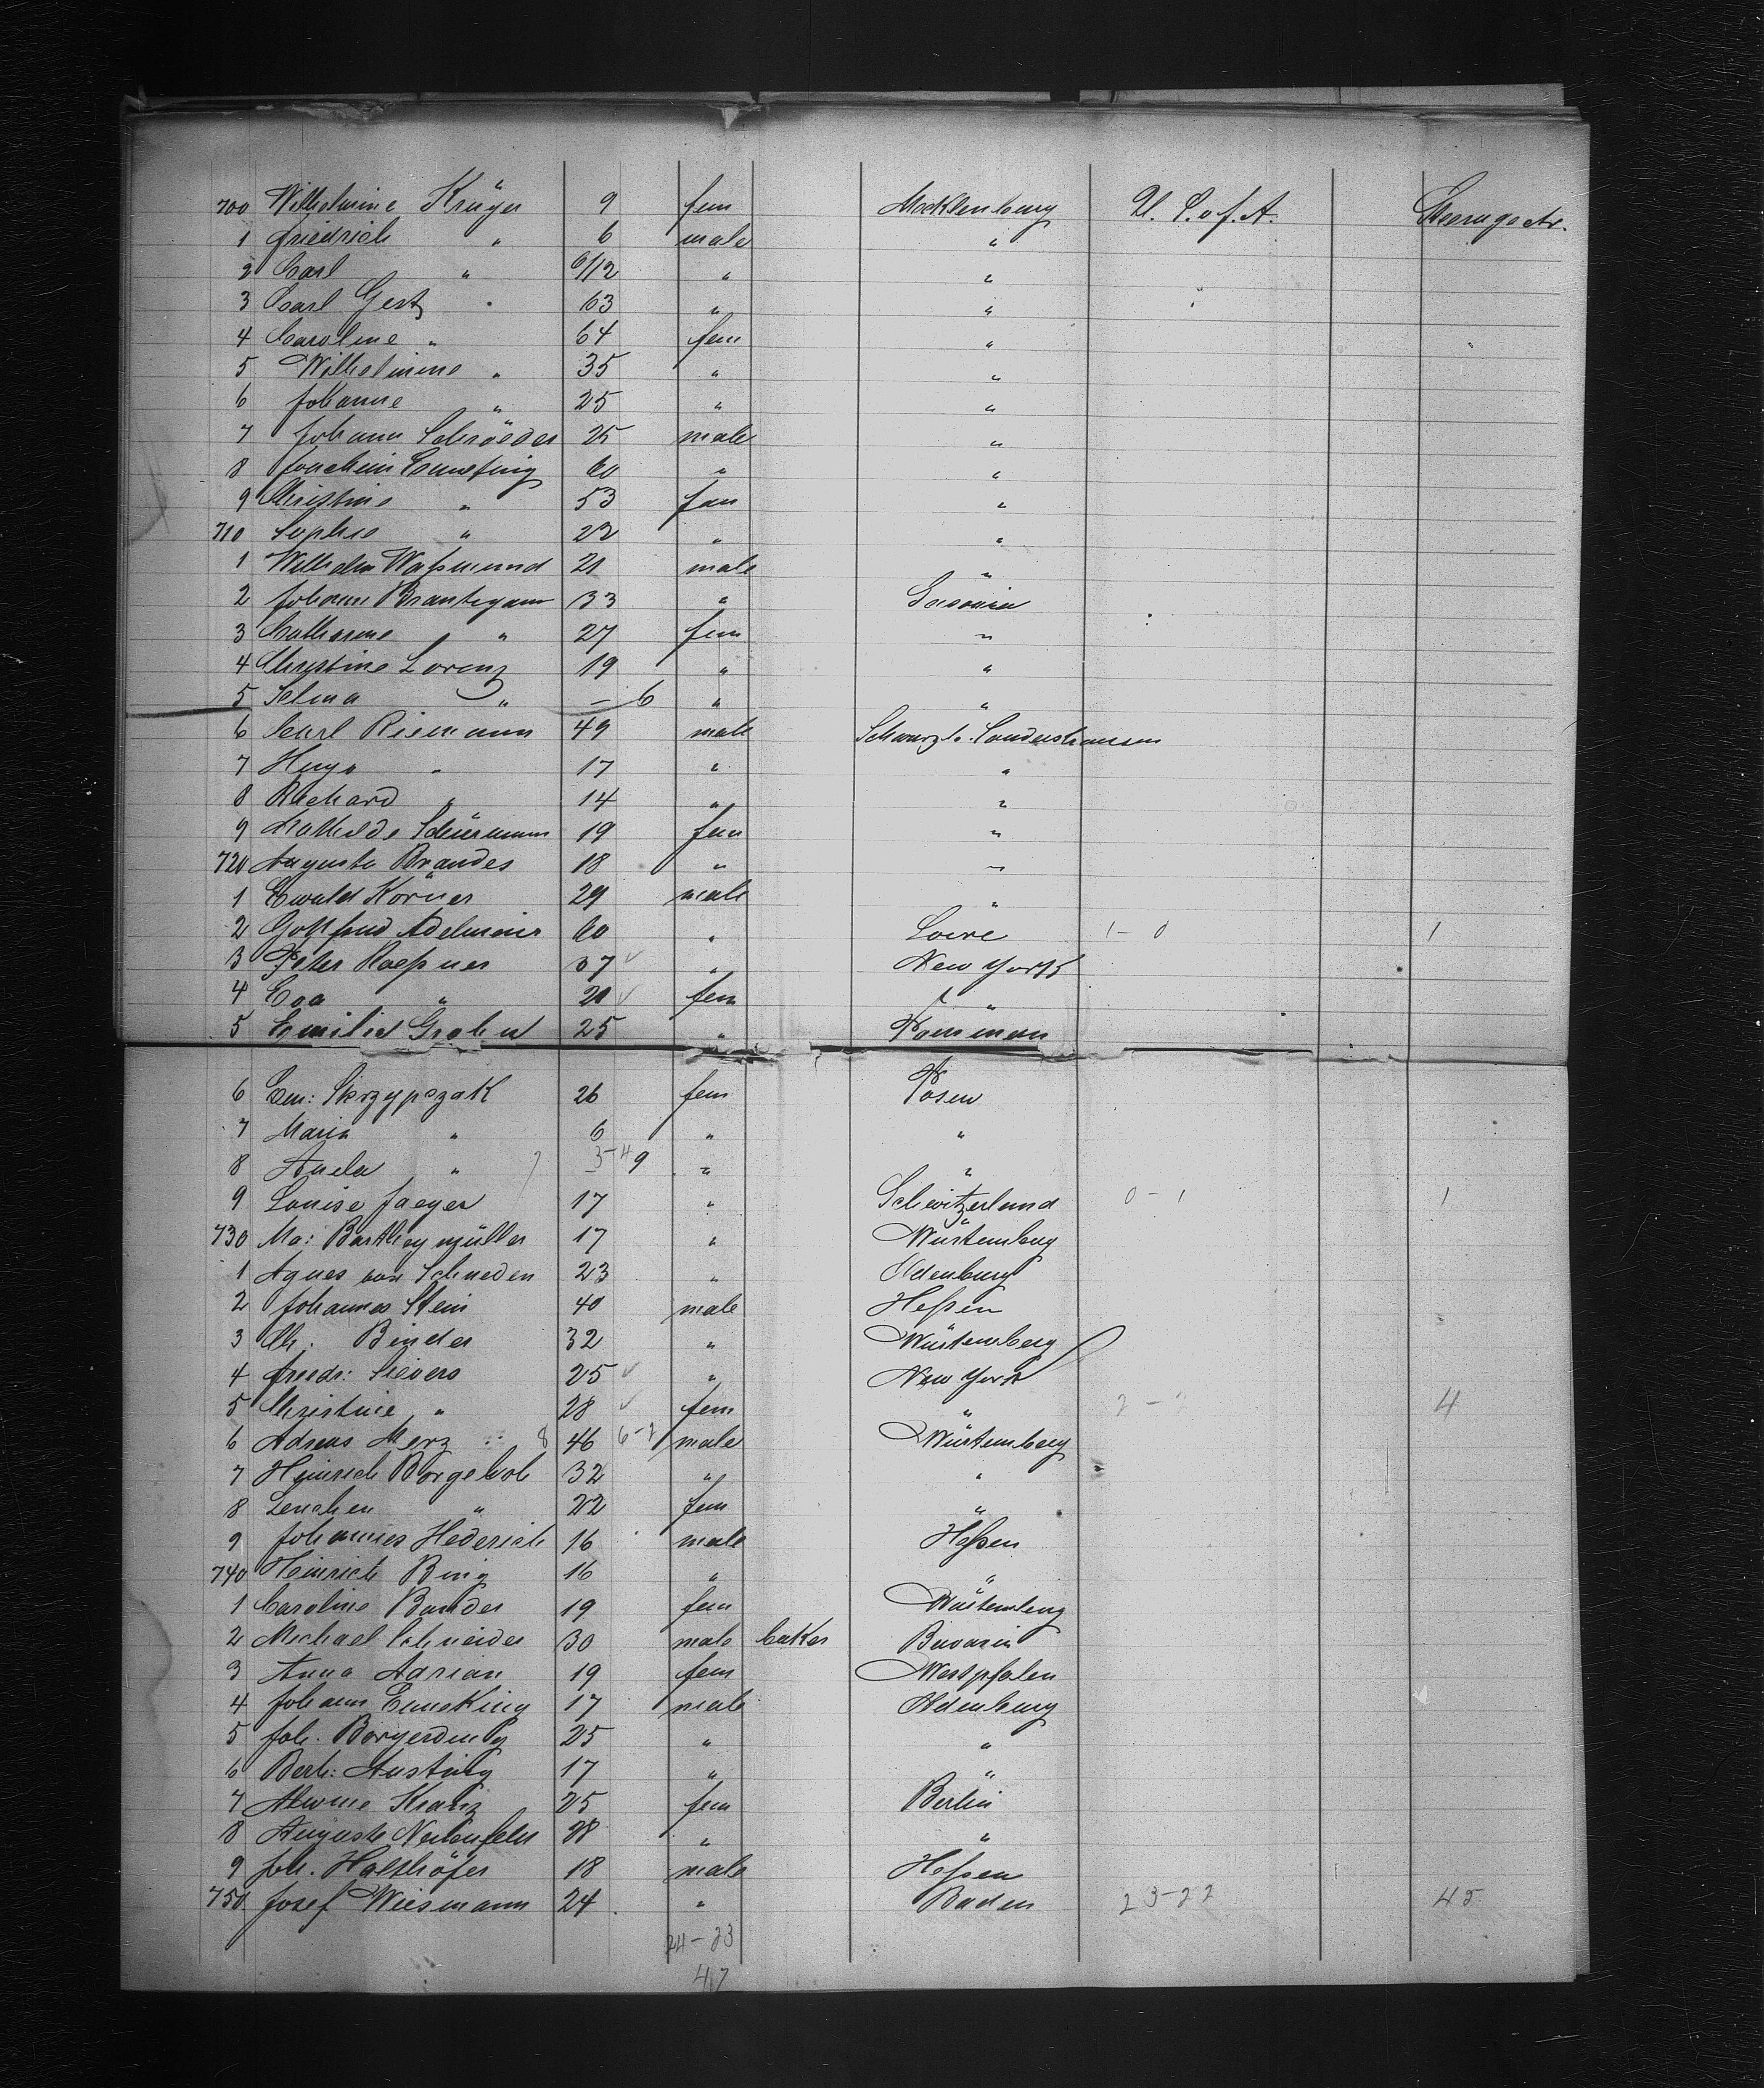 700 Wilhelmine Krüger 9 fem Mecklenburg U. S. of A. Steerage etc.
1 Friedrich " 6 male "
2 Carl " 6/12 " "
3 Carl Gest 63 " "
4 Caroline " 64 fem "
5 Wilhelmine " 35 " "
6 Johanne " 25 " "
7 Johann Schröeder 25 male "
8 Joachim 60 " "
9 Christine " 53 fem "
710 Sophie " 22 " "
1 Wilhelm Waßmund 21 male "
2 Johann Brantigam 33 " Saxonia
3 Catherine " 27 fem "
4 Christine Lorenz 19 " "
5 Selma " – 6 " "
6 Carl Riemann 49 male Schwarzb. Sondershausen
7 Hugo " 17 " "
8 Richard " 14 " "
9 Mathilde Schürmann 19 fem "
720 Auguste Brandes 18 " "
1 Ewald Körner 29 male "
2 Gottfried 60 " 1 - 0 1
3 Peter Roeßner 37 " New York
4 Eva " 21 fem "
5 Emilie 25 " Pommern
6 Em: Skrzypczak 26 fem Posen
7 Maria " 6 " "
8 Anela " 9 " "
9 Louise Jaeger 17 " Schwitzerland 0 - 1 1
730 Ma: Bartheymüller 17 " Würtemberg
1 Agnes von Schneden 23 " Oldenburg
2 Johannes Stein 40 male Heßen
3 Ch. Binder 32 " Würtemberg
4 Friedr: Sievers 25 " New York
5 Christine " 28 fem " 2 - 2 4
6 Adreas Merz 8 46 6-2 male Würtemberg
7 Heinrich Borgeloh 32 " "
8 Lenchen " 22 fem "
9 Johannes Hederich 16 male Heßen
740 Heinrich Bing 16 " "
1 Caroline Bander 19 fem Würtemberg
2 Michael Schneider 30 male baker Bavaria
3 Anna Adrian 19 fem Westpfalen
4 Johann Enneking 17 male Oldenburg
5 Joh. Borgerding 25 " "
6 Berh: Austing 17 " "
7 Alwine Kranz 25 fem Berlin
8 Auguste 28 " "
9 Joh. Halthöfer 18 male Heßen
750 Josef Wiesmann 24 " Baden 23-22 45
24-23
47